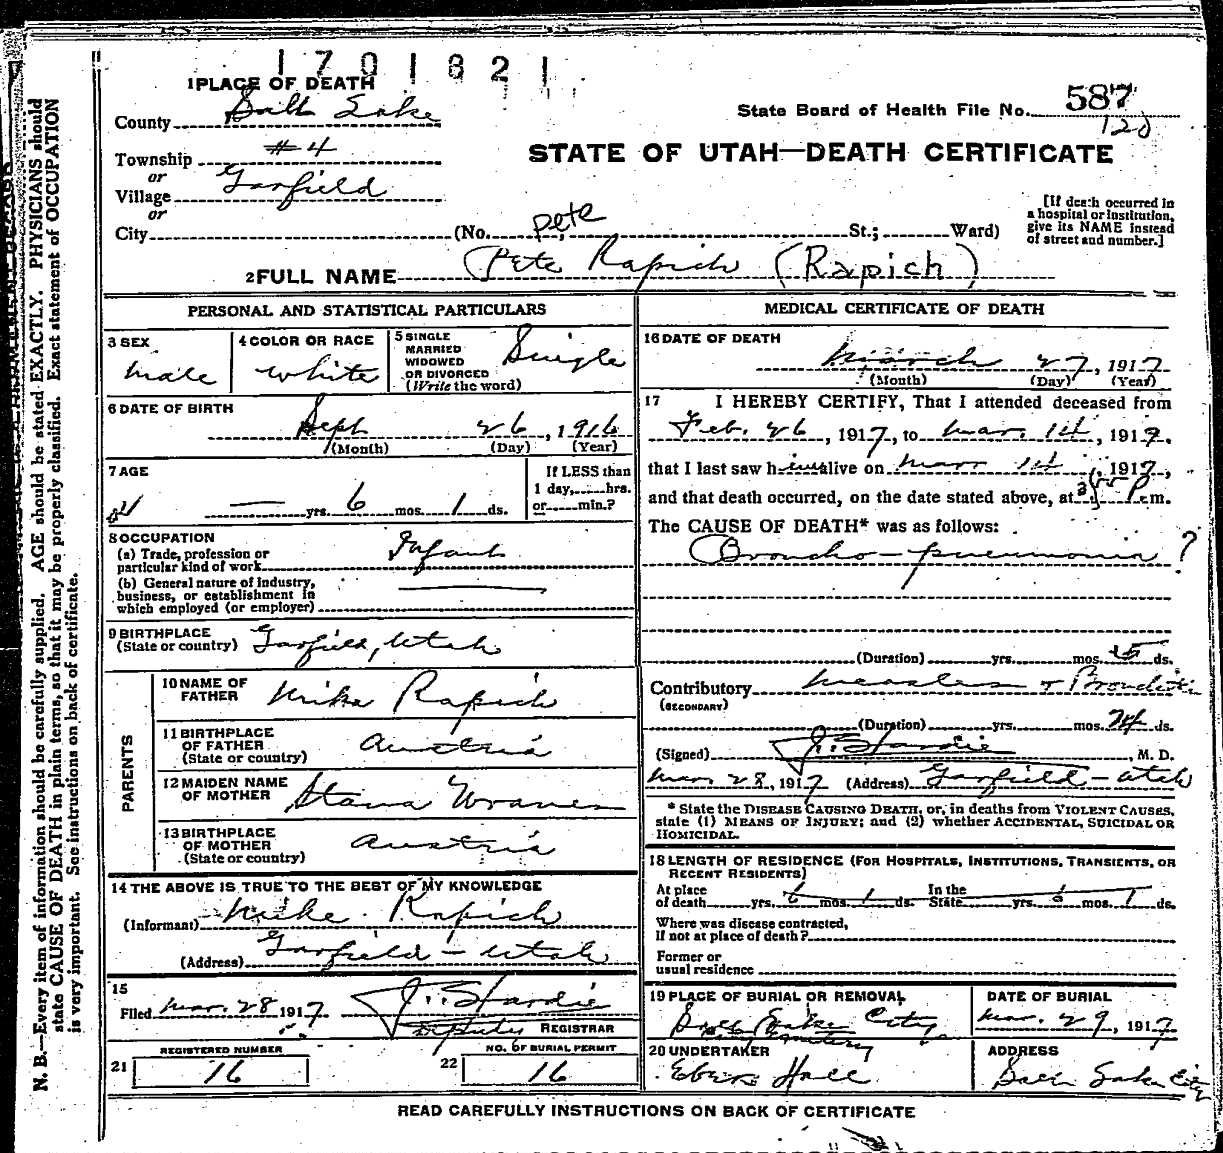 1701821
1 PLACE OF DEATH
County Salt Lake
State Board of Health File No. 587
120
Township #4
or
Village Garfield
or
STATE OF UTAH—DEATH CERTIFICATE
[If death occurred in
a hospital or institution,
give its NAME instead
of street and number.]
City (No. Pete St.; Ward)
2 FULL NAME Pete Rapich (Rapich)
PERSONAL AND STATISTICAL PARTICULARS
3 SEX
male
4 COLOR OR RACE
white
5 SINGLE
MARRIED
WIDOWED
OR DIVORCED
(Write the word)
Single
6 DATE OF BIRTH
Sept 26, 1916
(Month) (Day) (Year)
7 AGE
— yrs. 6 mos. 1 ds.
If LESS than
1 day, hrs.
or min.?
8 OCCUPATION
(a) Trade, profession or
particular kind of work Infant
(b) General nature of industry,
business, or establishment in
which employed (or employer)
9 BIRTHPLACE
(State or country) Garfield, Utah
PARENTS
10 NAME OF
FATHER Mike Rapich
11 BIRTHPLACE
OF FATHER
(State or country) Austria
12 MAIDEN NAME
OF MOTHER Stana
13 BIRTHPLACE
OF MOTHER
(State or country) Austria
14 THE ABOVE IS TRUE TO THE BEST OF MY KNOWLEDGE
(Informant) Mike Rapich
(Address) Garfield - Utah
15
Filed Mar. 28 1917 J. Hardie
Deputy REGISTRAR
REGISTERED NUMBER
21 16
NO. OF BURIAL PERMIT
22 16
MEDICAL CERTIFICATE OF DEATH
16 DATE OF DEATH
March 27, 1917
(Month) (Day) (Year)
17 I HEREBY CERTIFY, That I attended deceased from
Feb. 26, 1917, to Mar. 14, 1917.
that I last saw him alive on Mar 14, 1917,
and that death occurred, on the date stated above, at 3 P.m.
The CAUSE OF DEATH* was as follows:
Broncho-pneumonia ?
(Duration) yrs. mos. 15 ds.
Contributory Measles + Bronchitis
(SECONDARY)
(Duration) yrs. mos. 24 ds.
(Signed) J. Hardie, M. D.
Mar. 28, 1917 (Address) Garfield - Utah
* State the DISEASE CAUSING DEATH, or, in deaths from VIOLENT CAUSES,
state (1) MEANS OF INJURY; and (2) whether ACCIDENTAL, SUICIDAL OR
HOMICIDAL.
18 LENGTH OF RESIDENCE (FOR HOSPITALS, INSTITUTIONS, TRANSIENTS, OR
RECENT RESIDENTS)
At place In the
of death yrs. 6 mos. 1 ds. State yrs. 6 mos. 1 ds.
Where was disease contracted,
If not at place of death?
Former or
usual residence
19 PLACE OF BURIAL OR REMOVAL
Salt Lake City
City Cemetery
DATE OF BURIAL
Mar. 29, 1917
20 UNDERTAKER
Eber Hall
ADDRESS
Salt Lake City
READ CAREFULLY INSTRUCTIONS ON BACK OF CERTIFICATE
N. B.—Every item of information should be carefully supplied. AGE should be stated EXACTLY. PHYSICIANS should
state CAUSE OF DEATH in plain terms, so that it may be properly classified. Exact statement of OCCUPATION
is very important. See instructions on back of certificate.